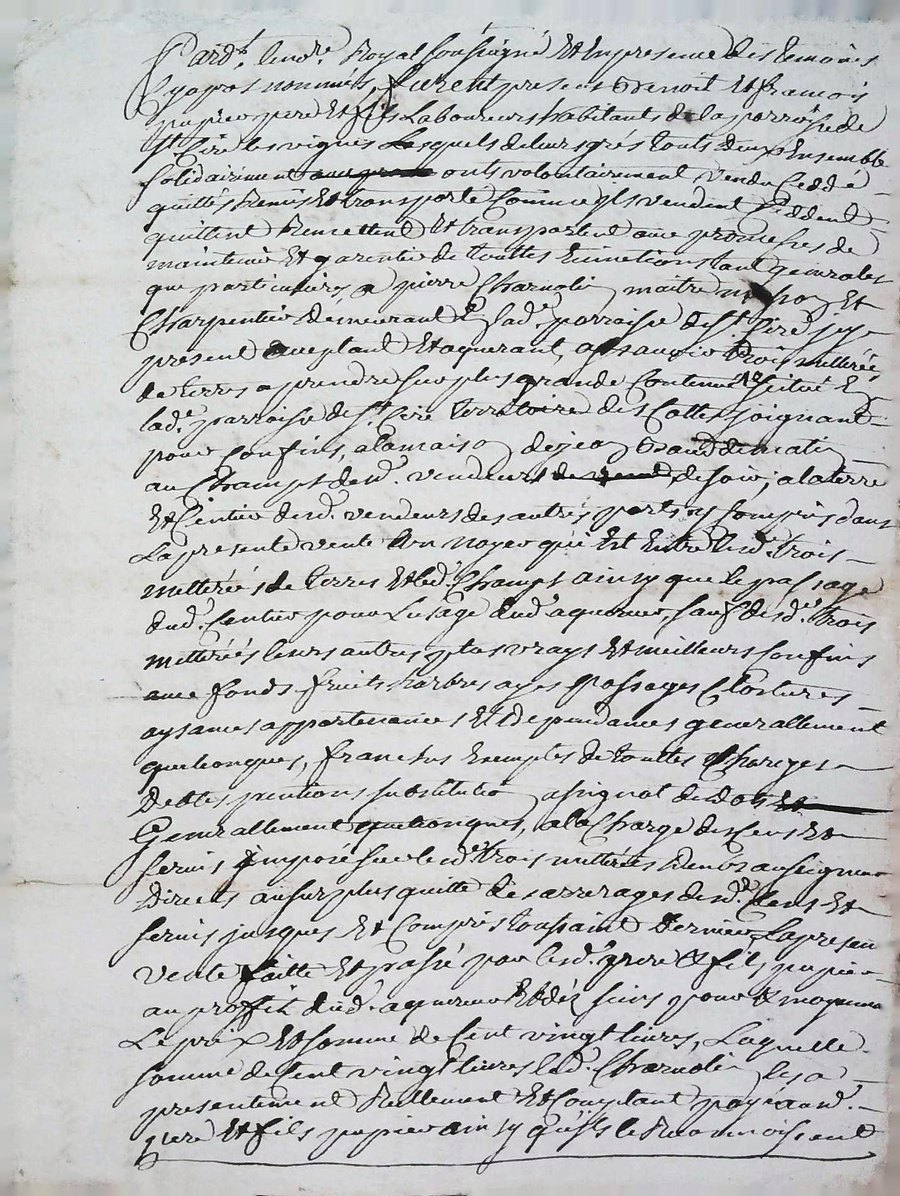 Pardt. Le notre. Royal soussigné Et En presence des temoins
Cy apres nommés, furent presens Benoit Et francois
pupier pere Et fils Laboureurs habitants de la parroisse de
St. Cire les vignes Lesquels de leurs grés touts deux Ensemble
solidairement onts volontairement vendu Ceddé
quittés Remis Et transporté Comme ils vendent Ceddent
quittent Remettent Et transportent avec promesses de
maintenir Et garentir de touttes Evinctions tant generales
que particulieres a pierre Charnolin maitre masson Et
Charpentier demeurant En lade. parroisse de St. Cire icy
present aceptant Et aquerant, a scavoir trois metterées
de terres a prendre sur plus grande Contenue scitué En
lade. parroisse de St. Cire territoire des Cottes joignant
pour Confins, a la maison de jean de matin
au Champs desds. vendeurs de soir, a la terre
Et Centier desds. vendeurs des autres parts y Compris dans
La presente vente Un noyer qui Est Entre lesdes. trois
metterées de terres Et led. Champs ainsy que le passage
dud. Centier pour L'usage dud. aquereur, sauf desdes. trois
metterées leurs autres plus vrays Et meilleurs Confins
avec fonds fruits harbres ayes passages Clostures
aysances appartenances Et dependances generallement
quelconques, franches Exemptes de touttes Charges
Debtes pentions substitution assignat de dots Et
Generallement quelconques, a la Charge des Cens Et
servis imposé sur lesdes. trois metterées Envers au seigneur
Direct au surplus quitte des arrerages desds. Cens Et
servis jusques Et Compris toussaint dernier, La presen
vente faitte Et passé par lesds. pere Et fils pupier
au proffit dud. aquereur Et des siens pour Et moyenna
Le prix Et somme de Cent vingt livres, Laquelle
somme de Cent vingt livres led. Charnolin les a
presentement Reellement Et Comptant payé auxds.
pere Et fils pupier ainsy qu'ils le Reconnoissent